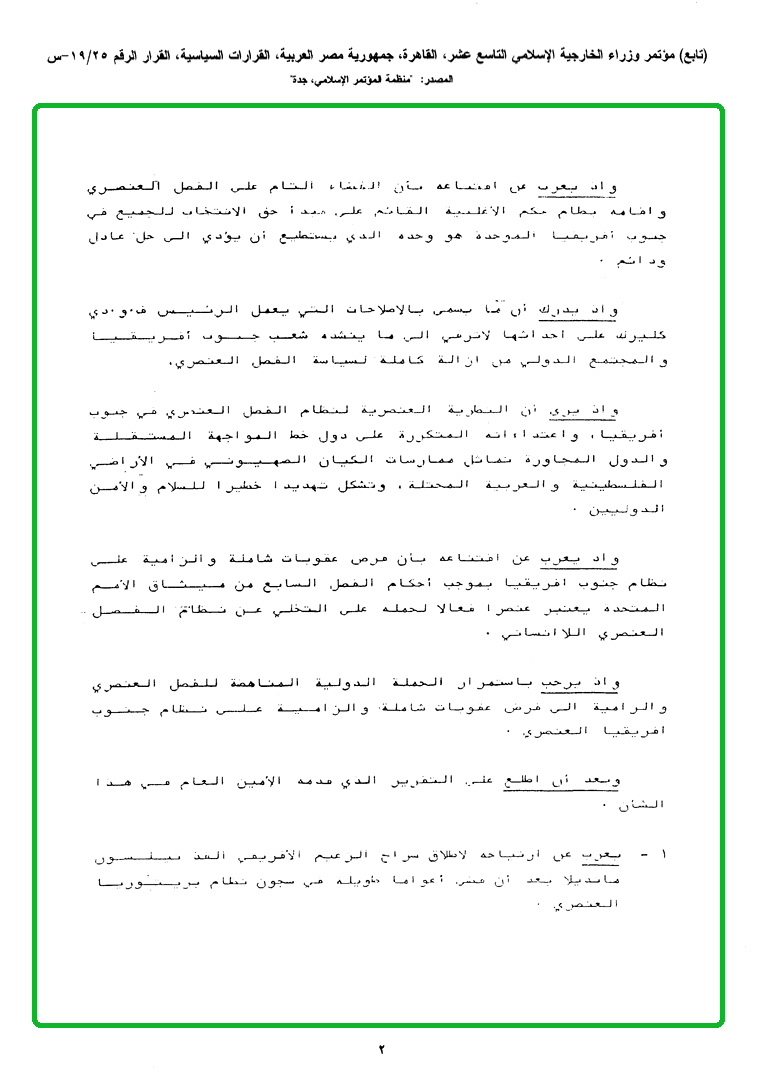 (تابع) مؤتمر وزراء الخارجية الإسلامي التاسع عشر، القاهرة، جمهورية مصر العربية، القرارات السياسية، القرار الرقم ١٩/٢٥-س
المصدر: "منظمة المؤتمر الإسلامي، جدة"
واذ يعرب عن اقتناعه بأن القضاء التام على الفصل العنصري
واقامة نظام حكم الأغلبية القائم على مبدأ حق الانتخاب للجميع في
جنوب أفريقيا الموحدة هو وحده الذي يستطيع أن يؤدي الى حل عادل
ودائم .
واذ يدرك أن ما يسمى بالاصلاحات التي يعمل الرئيس ف.و.دي
كليرك على احداثها لاترمي الى ما ينشده شعب جنوب أفريقيا
والمجتمع الدولي من ازالة كاملة لسياسة الفصل العنصري.
واذ يرى أن النظرية العنصرية لنظام الفصل العنصري في جنوب
أفريقيا، واعتداءاته المتكررة على دول خط المواجهة المستقلة
والدول المجاورة تماثل ممارسات الكيان الصهيوني في الأراضي
الفلسطينية والعربية المحتلة، وتشكل تهديدا خطيرا للسلام والأمن
الدوليين .
واذ يعرب عن اقتناعه بأن فرض عقوبات شاملة والزامية على
نظام جنوب افريقيا بموجب أحكام الفصل السابع من ميثاق الأمم
المتحدة يعتبر عنصرا فعالا لحمله على التخلي عن نظام الفصل
العنصري اللاانساني .
واذ يرحب باستمرار الحملة الدولية المناهضة للفصل العنصري
والرامية الى فرض عقوبات شاملة والزامية على نظام جنوب
افريقيا العنصري .
وبعد أن اطلع على التقرير الذي قدمه الأمين العام في هذا
الشأن .
١ - يعرب عن ارتياحه لاطلاق سراح الزعيم الأفريقي الفذ نيلسون
مانديلا بعد أن قضى أعواما طويلة في سجون نظام بريتوريا
العنصري .
٢